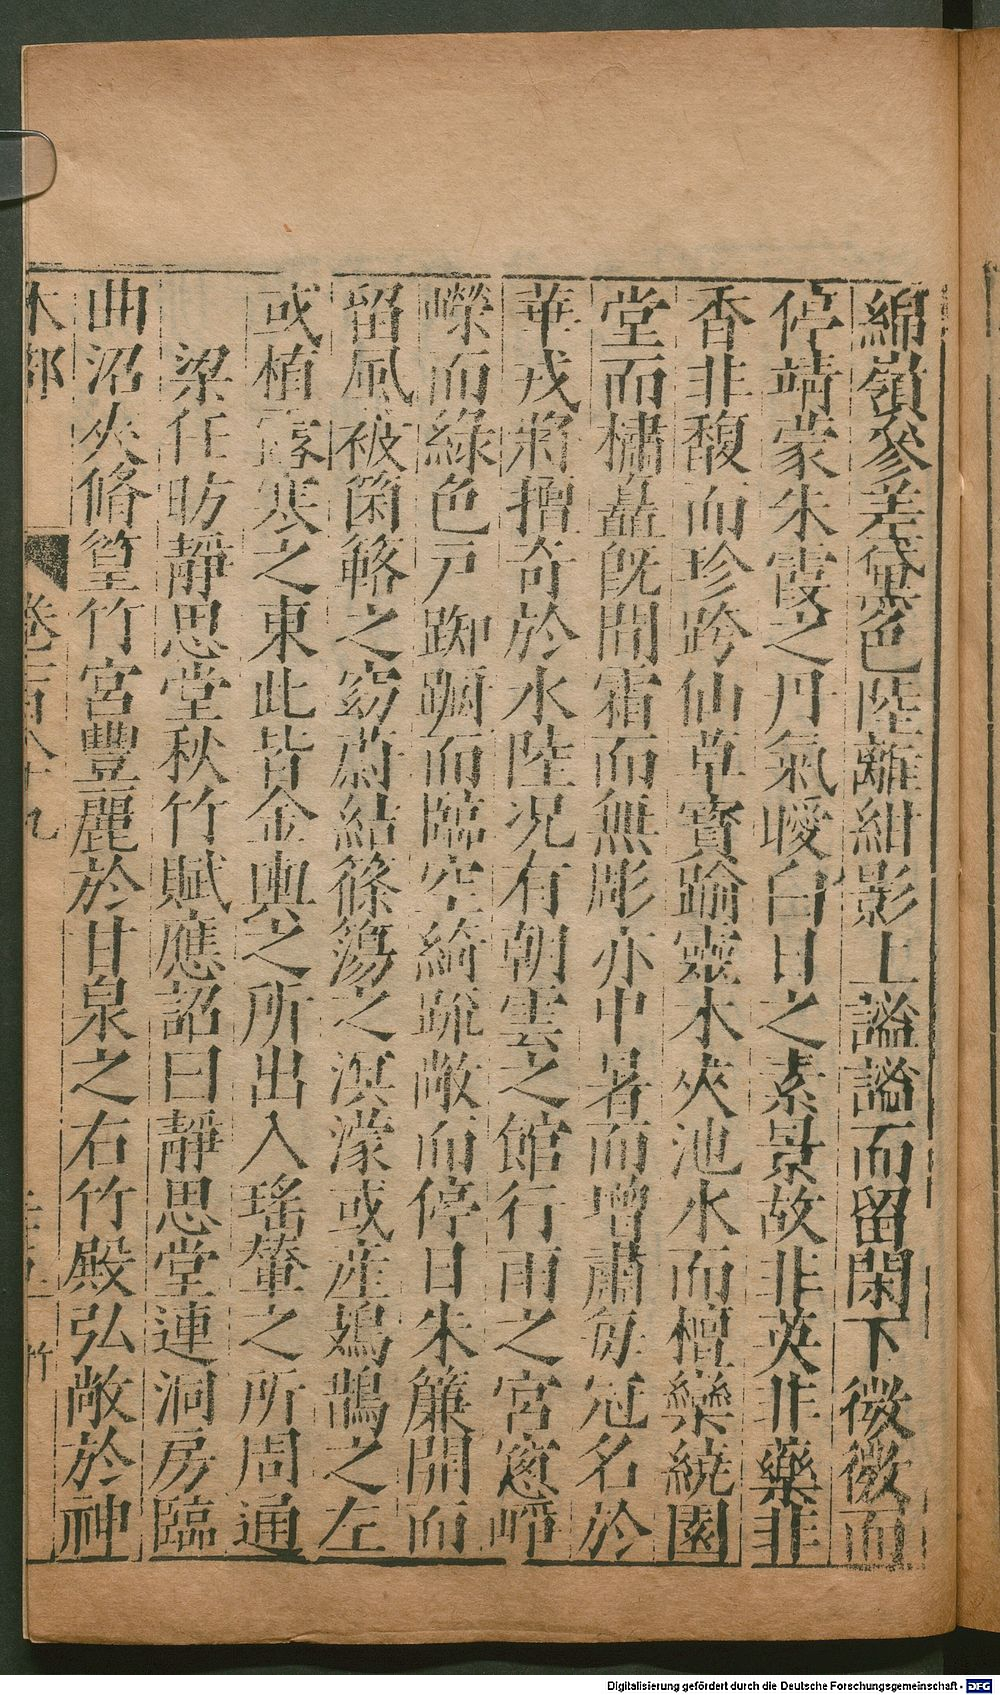 綿嶺參差黛色陸離紺影上謐謐而留閑下微微而
停靖蒙朱霞之丹氣曖白日之素景故非英非藥非
香非馥而珍跨仙草寶踰靈木夾池水而檀欒繞園
堂而橚矗旣間霜而無彫亦中暑而增肅每冠名於
華戎將擅奇於水陸况有朝雲之館行雨之宮窻崢
嶸而綠色戸踟躕而臨空綺疏敞而停日朱簾開而
留風被箘簬之窈蔚結篠簜之溟濛或産鳷鵲之左
或植露寒之東此皆金輿之所出入瑤輦之所周通
梁任昉靜思堂秋竹賦應詔曰靜思堂連洞房臨
曲沼夾脩篁竹宮豐麗於甘泉之右竹殿弘敞於神
木部 卷一百八十九 竹
Digitalisierung gefördert durch die Deutsche Forschungsgemeinschaft - DFG